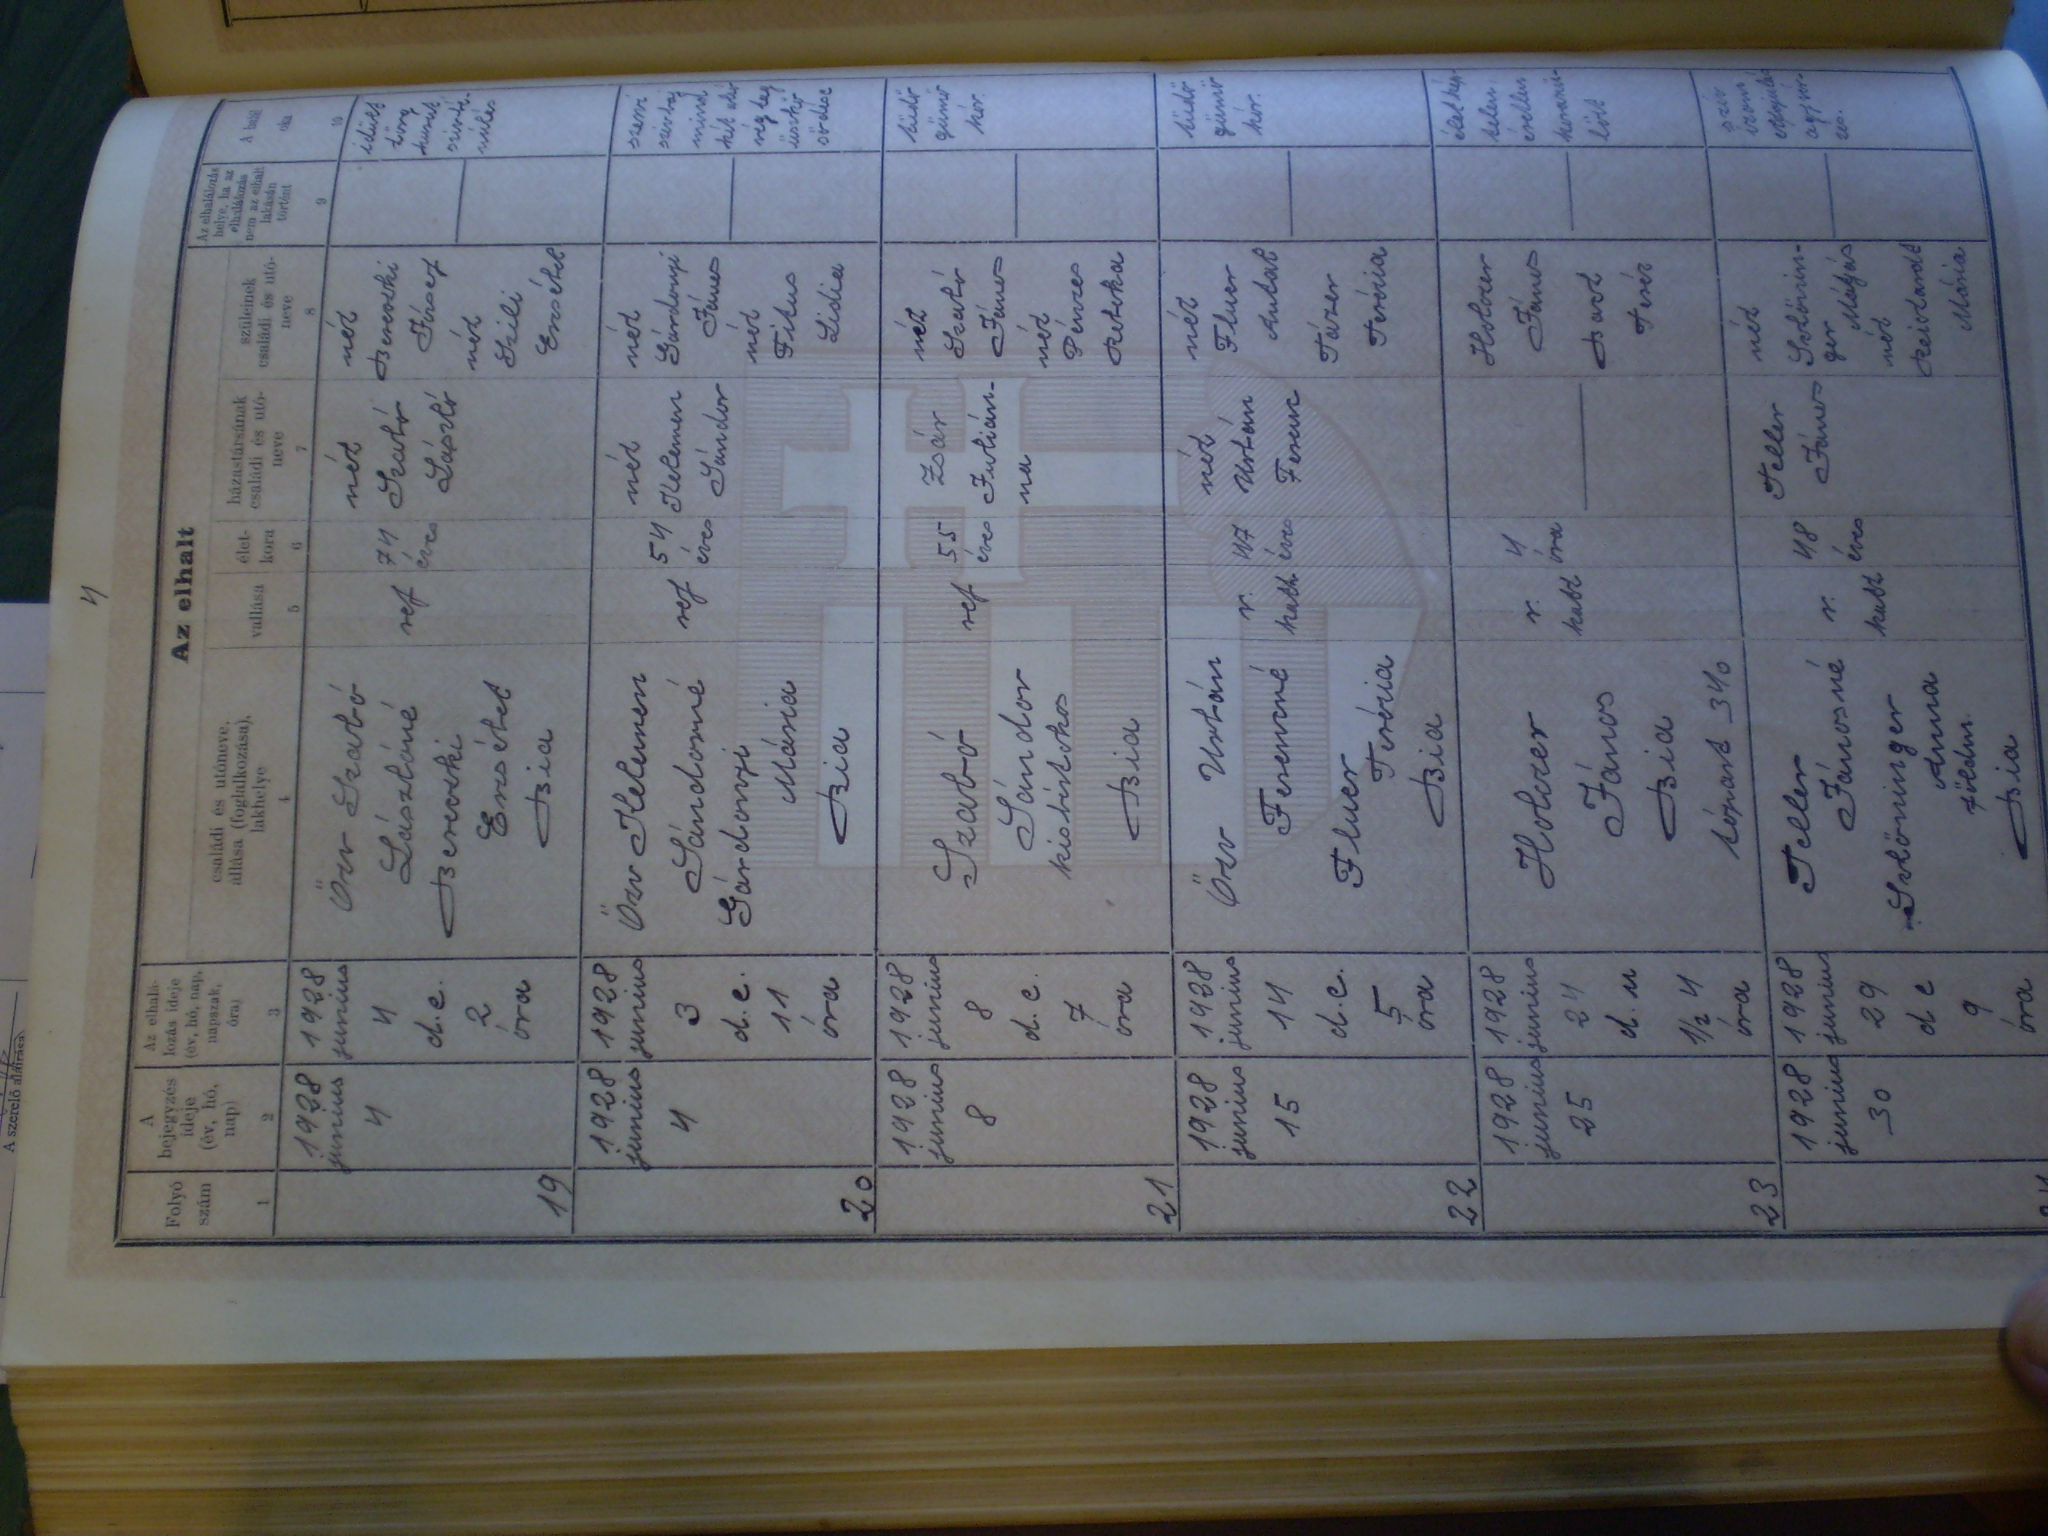 4
Az elhalt
Folyó
szám
A
bejegyzés
ideje
(év, hó,
nap)
Az elhalá-
lozás ideje
(év, hó, nap,
napszak,
óra)
családi és utóneve,
állása (foglalkozása),
lakhelye
vallása
élet-
kora
házastársának
családi és utó-
neve
szüleinek
családi és utó-
neve
Az elhalálozás
helye, ha az
elhalálozás
nem az elhalt
lakásán
történt
A halál
oka
1
2
3
4
5
6
7
8
9
10
19
1928
junius
4
1928
junius
4
d.e.
2
óra
Özv Szabó
Lászlóné
Bereczki
Erzsébet
Bia
ref
74
éves
néh
Szabó
László
néh
Bereczki
József
néh
Szili
Erzsébet
20
1928
junius
4
1928
junius
3
d.e.
11
óra
Özv Kelemen
Sándorné
Gárdonyi
Mária
Bia
ref
54
éves
néh
Kelemen
Sándor
néh
Gárdonyi
János
néh
Fitus
Lidia
21
1928
junius
8
1928
junius
8
d.e.
7
óra
Szabó
Sándor
kisbirtokos
Bia
ref
55
éves
Zsár
Julián-
na
néh
Szabó
János
néh
Pénzes
Rebeka
tüdő
gümő
kór.
22
1928
junius
15
1928
junius
14
d.e.
5
óra
Özv Urbán
Ferencné
Fluer
Terézia
Bia
r.
kath
47
éves
néh
Urbán
Ferenc
néh
Fluer
Antal
Tázer
Terézia
tüdő
gümő
kór.
23
1928
junius
25
1928
junius
24
d.u
1/2 4
óra
Holczer
János
Bia
r.
kath
4
óra
Holczer
János
Bart
Teréz
1928
junius
30
1928
junius
29
d e
9
óra
Teller
Jánosné
Anna
földm.
Bia
r.
kath
48
éves
Teller
János
néh
Mátyás
néh
Mária
A szerelő aláírása